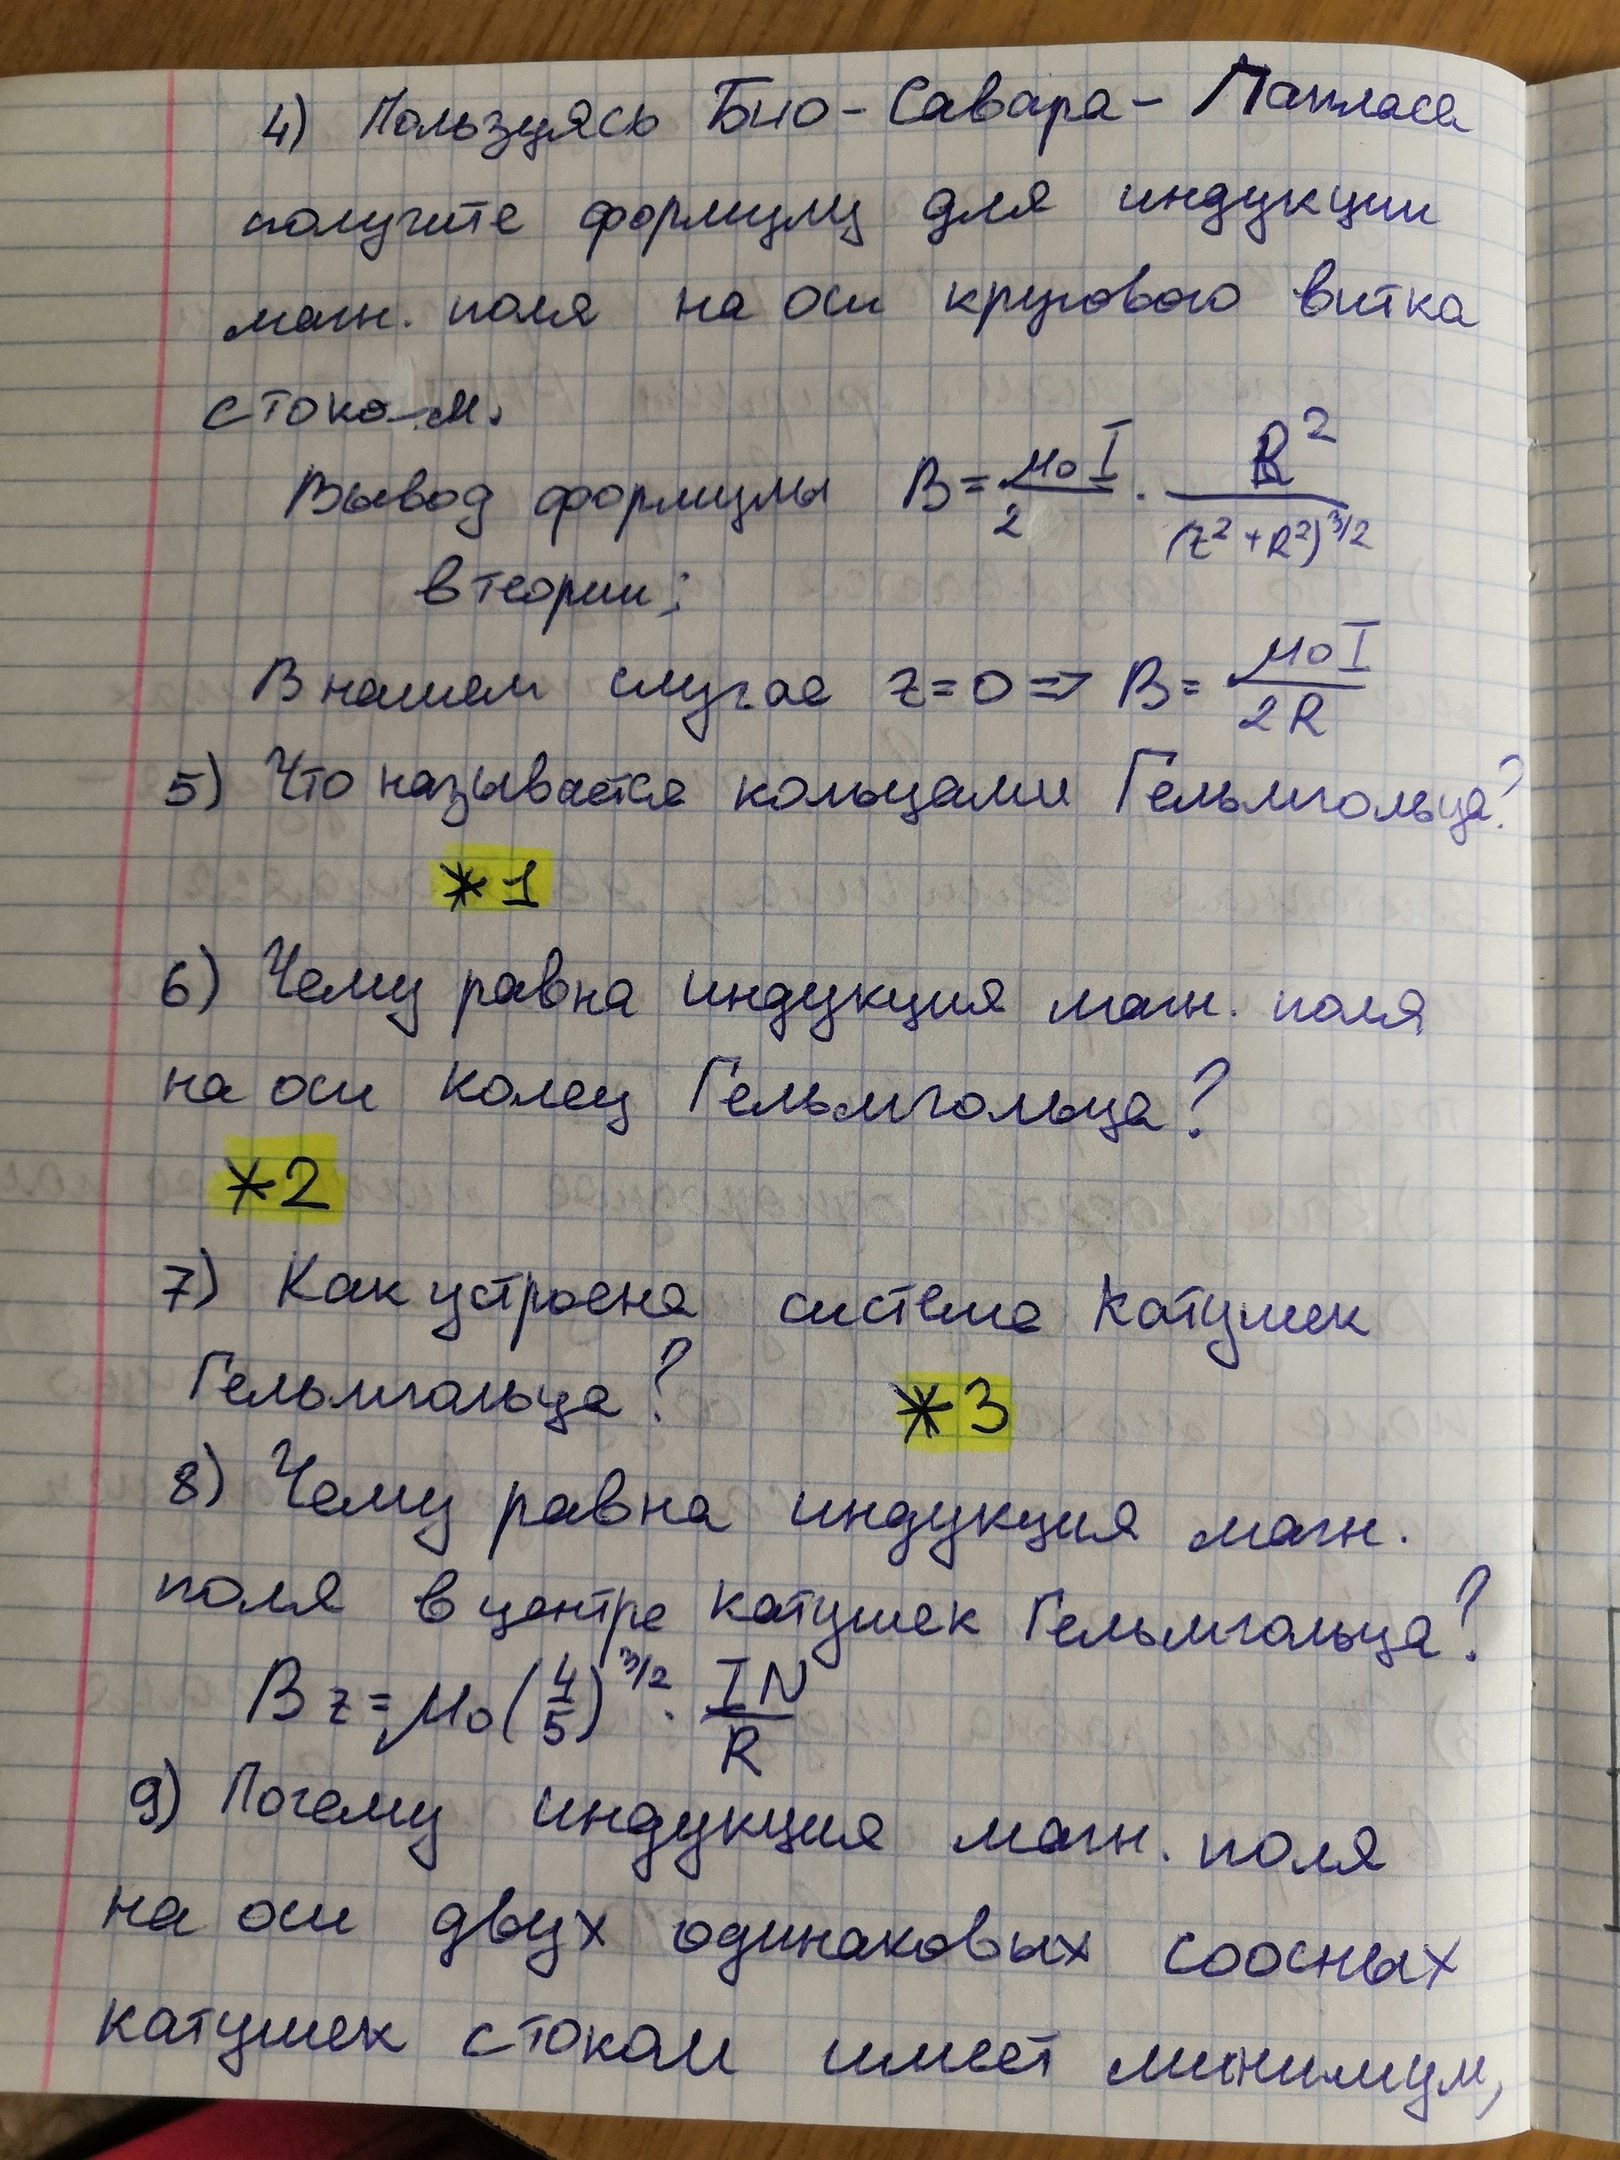 4) Пользуясь Био-Савара-Лапласа
получите формулу для индукции
магн. поля на оси кругового витка
с током.
Вывод формулы B = μ₀I/2 · R²/(z²+R²)^3/2
в теории;
В нашем случае z=0 => B = μ₀I/2R
5) Что называется кольцами Гельмгольца?
*1
6) Чему равна индукция магн. поля
на оси колец Гельмгольца?
*2
7) Как устроена система катушек
Гельмгольца? *3
8) Чему равна индукция магн.
поля в центре катушек Гельмгольца?
Bz = μ₀(4/5)^3/2 · IN/R
9) Почему индукция магн. поля
на оси двух одинаковых соосных
катушек с током имеет минимум,